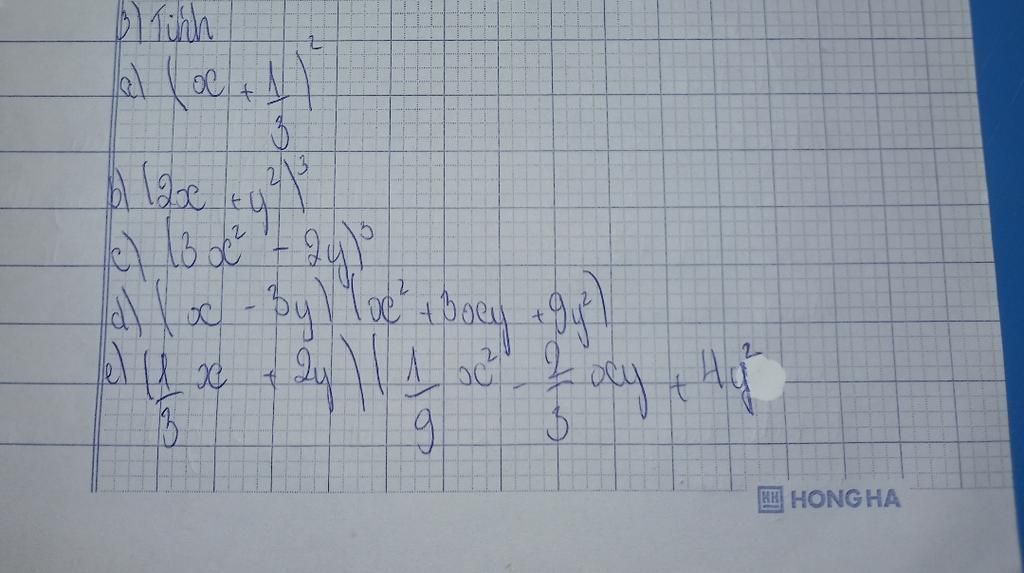 3) Tính
a) (x + 1/3)²
b) (2x + y²)³
c) (3x² - 2y)³
d) (x - 3y)(x² + 3xy + 9y²)
e) (1/3 x + 2y)(1/9 x² - 2/3 xy + 4y²
HH HONG HA